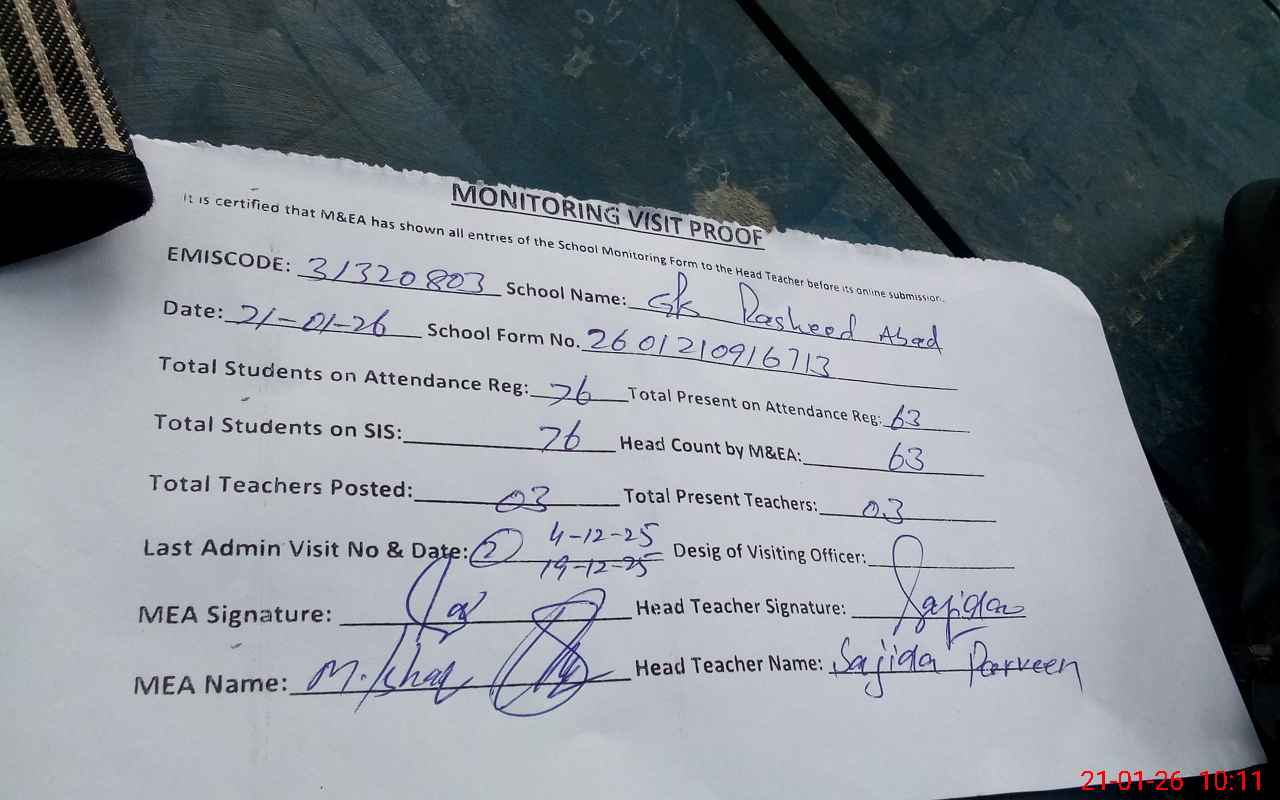 MONITORING VISIT PROOF
It is certified that M&EA has shown all entries of the School Monitoring Form to the Head Teacher before its online submission.
EMISCODE: 31320803 School Name: GK Rasheed Abad
Date: 21-01-26 School Form No. 2601210916713
Total Students on Attendance Reg: 76 Total Present on Attendance Reg: 63
Total Students on SIS: 76 Head Count by M&EA: 63
Total Teachers Posted: 03 Total Present Teachers: 03
Last Admin Visit No & Date: 2 4-12-25 19-12-25 Desig of Visiting Officer:
MEA Signature: Head Teacher Signature: Sajida
MEA Name: M. Ishaq Head Teacher Name: Sajida Parveen
21-01-26 10:11